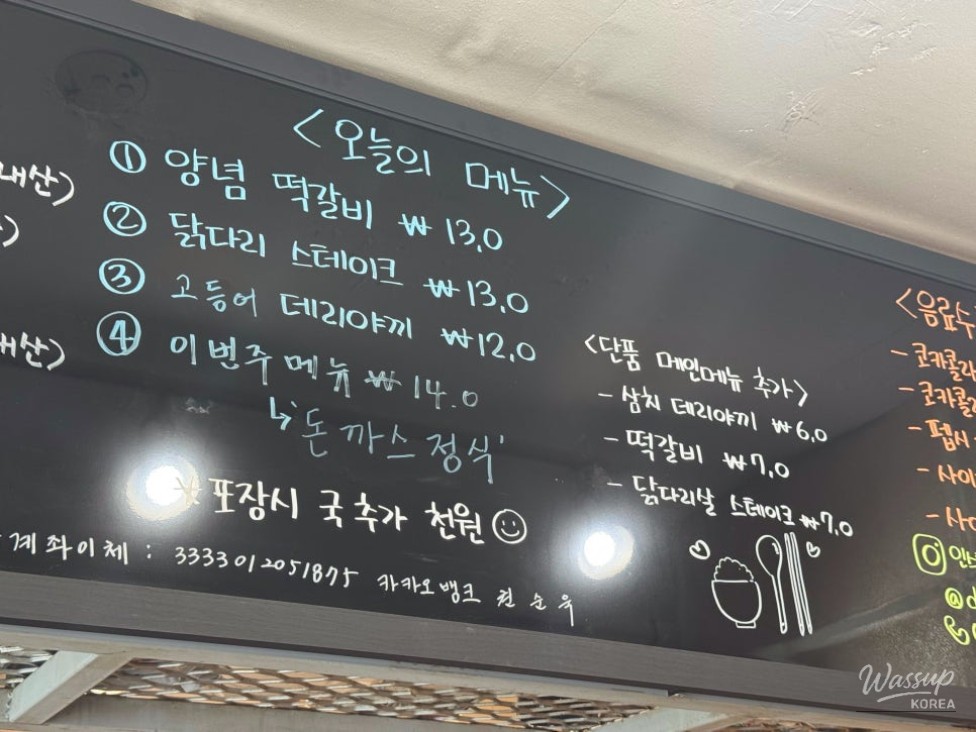 <오늘의 메뉴>
① 양념 떡갈비 ₩13.0
② 닭다리 스테이크 ₩13.0
③ 고등어 데리야끼 ₩12.0
④ 이번주 메뉴 ₩14.0
↳'돈까스 정식'
※ 포장시 국추가 천원 ☺
계좌이체 : 3333012051875 카카오뱅크 권순욱
<단품 메인메뉴 추가>
- 삼치 데리야끼 ₩6.0
- 떡갈비 ₩7.0
- 닭다리살 스테이크 ₩7.0
<음료수
- 코카콜라
- 코카콜라
- 펩시
- 사이
Wassup
KOREA